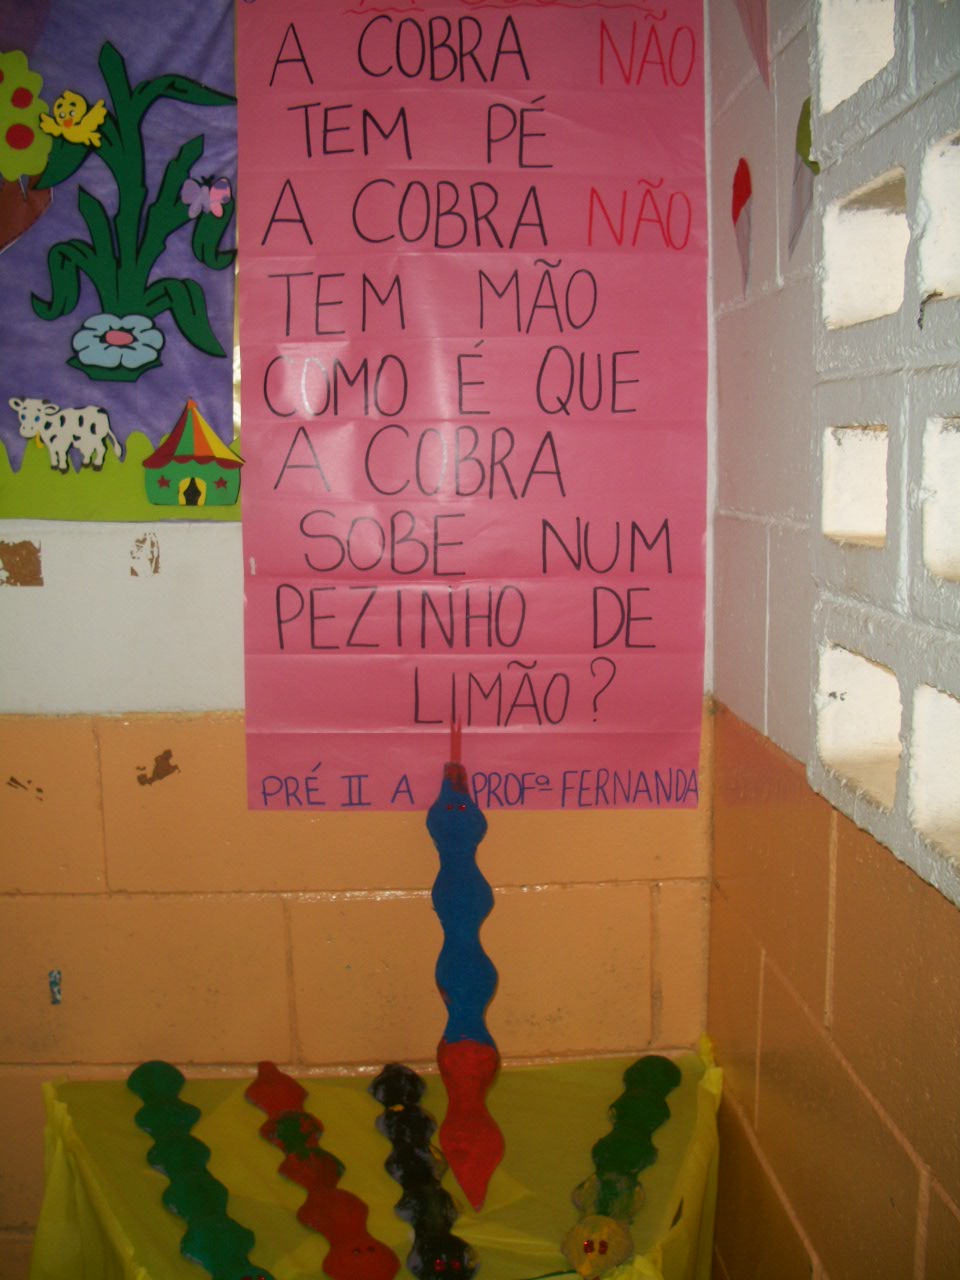 A COBRA NÃO
TEM PÉ
A COBRA NÃO
TEM MÃO
COMO É QUE
A COBRA
SOBE NUM
PEZINHO DE
LIMÃO?
PRÉ II A PROFª FERNANDA